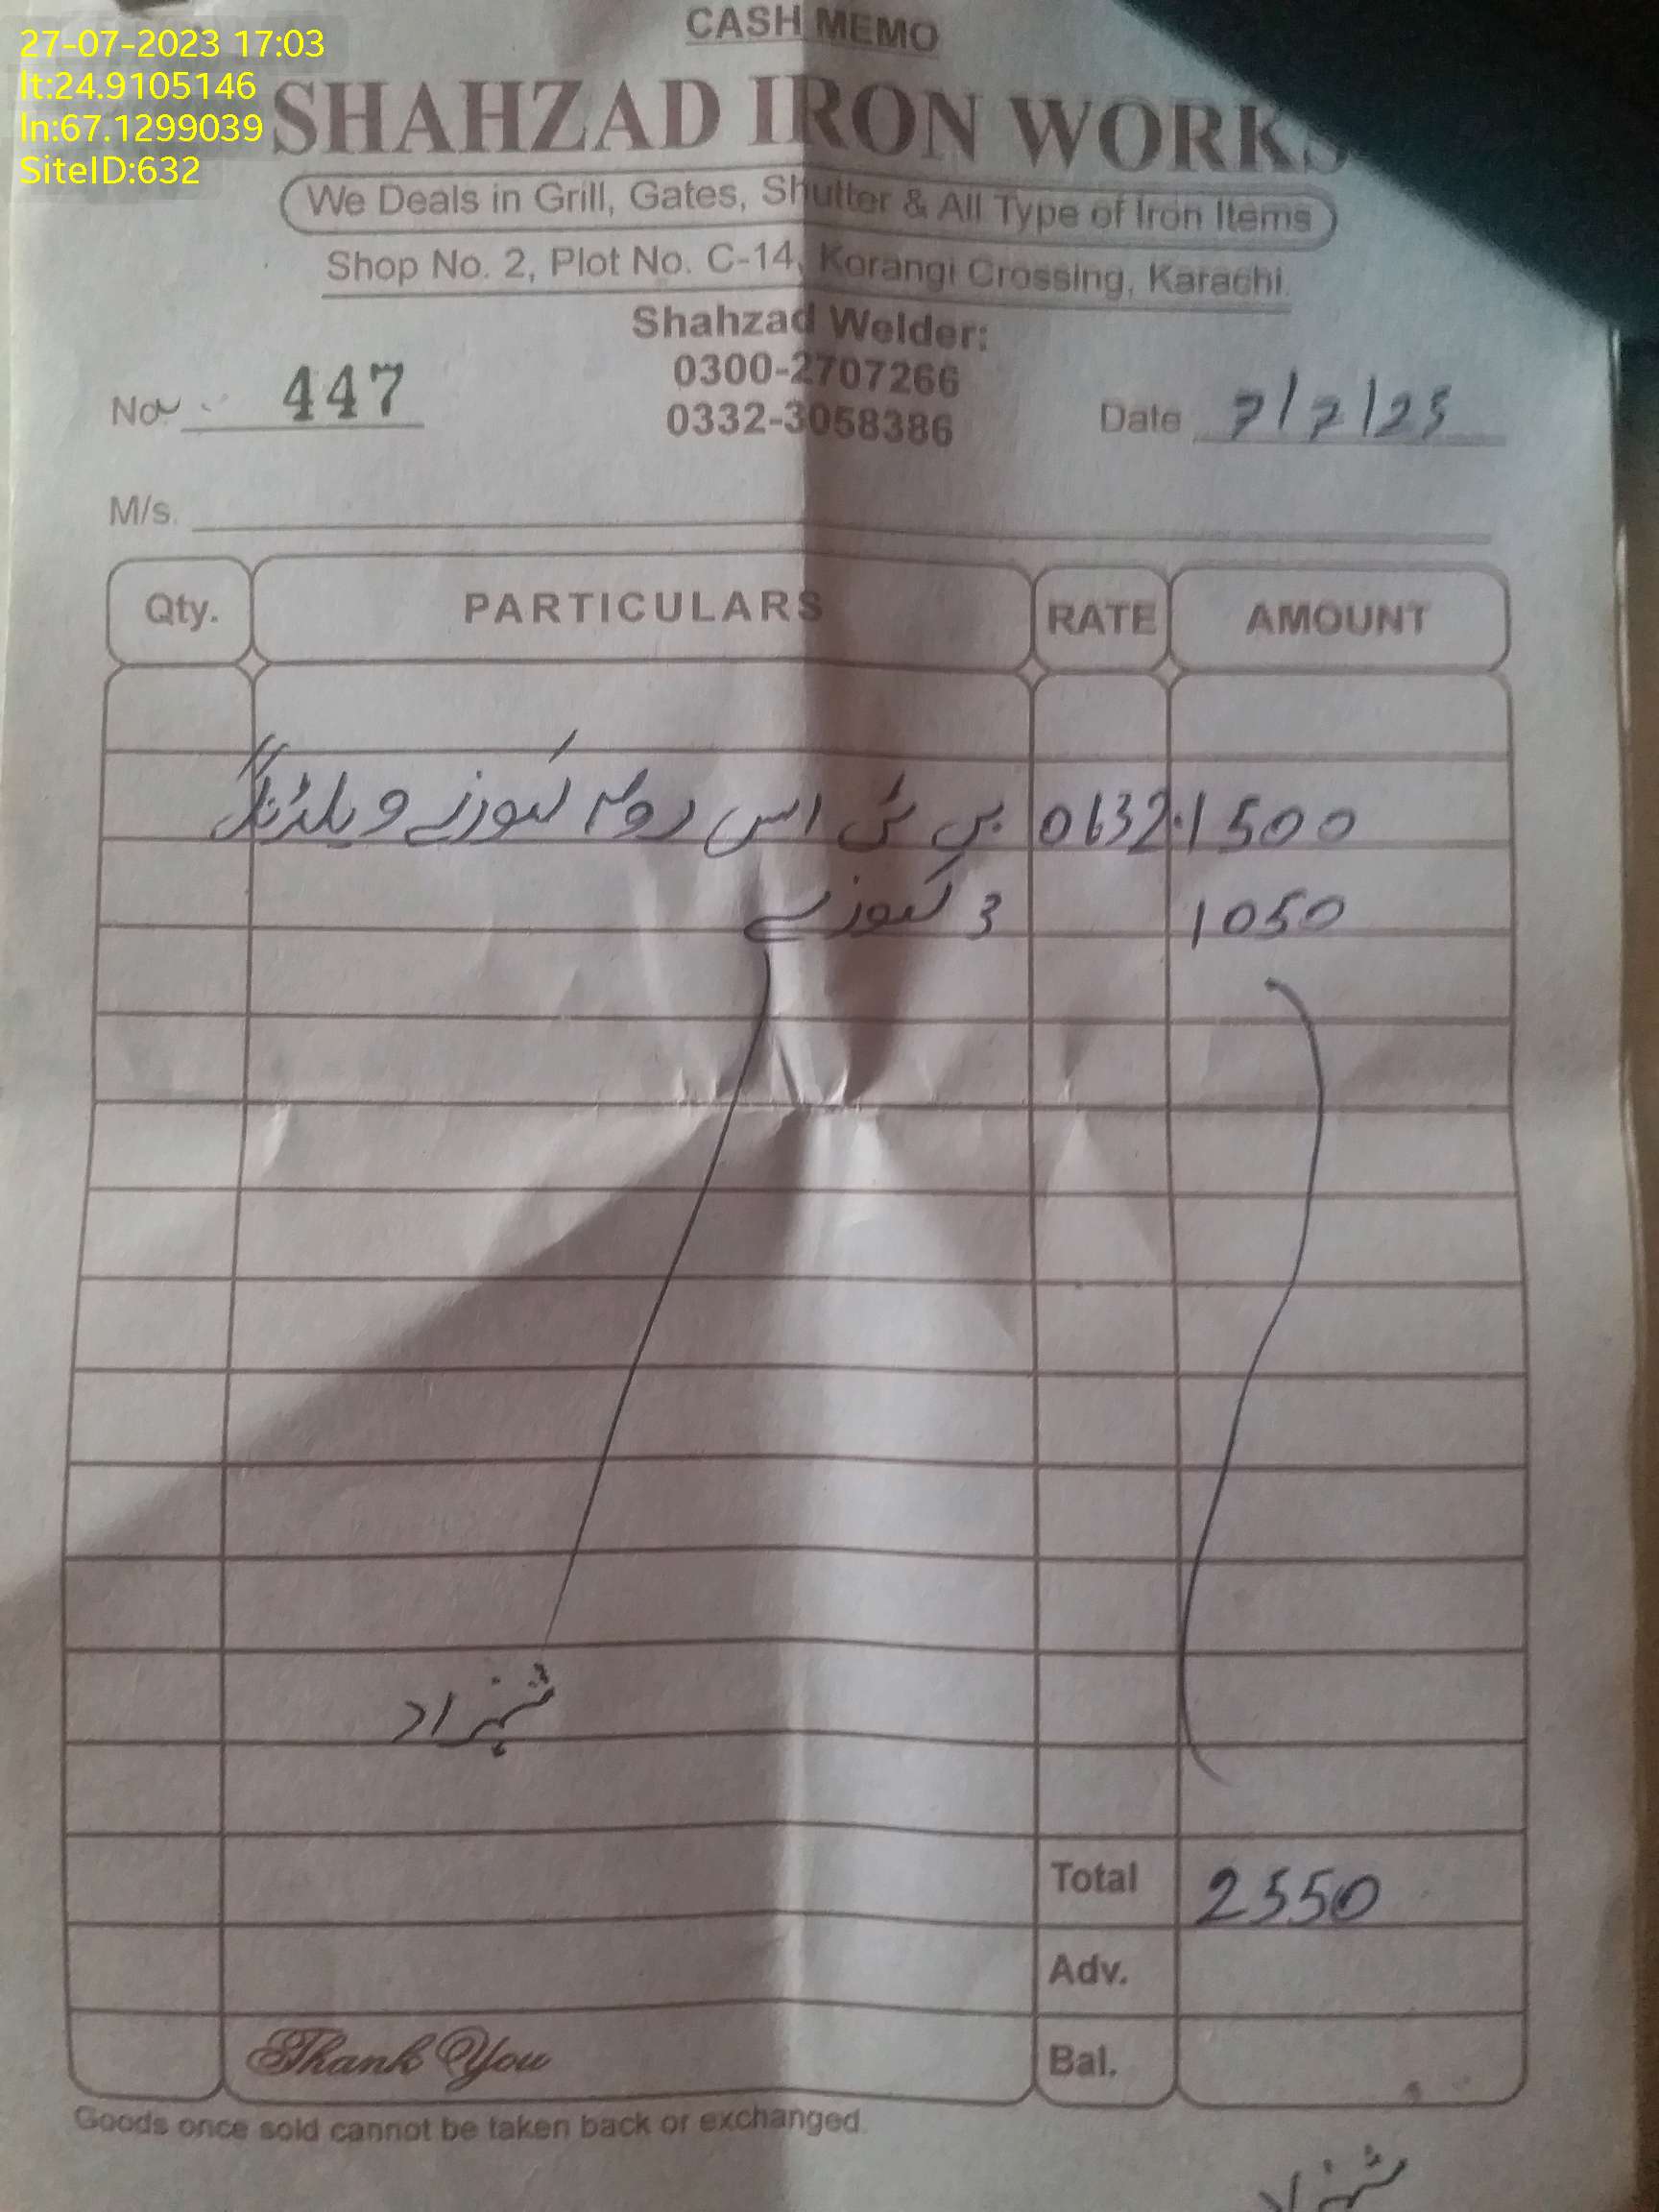 27-07-2023 17:03
lt:24.9105146
ln:67.1299039
SiteID:632
CASH MEMO
SHAHZAD IRON WORKS
We Deals in Grill, Gates, Shutter & All Type of Iron Items
Shop No. 2, Plot No. C-14, Korangi Crossing, Karachi.
Shahzad Welder:
0300-2707266
0332-3058386
No. 447
Date 7/7/23
M/s.
Qty. PARTICULARS RATE AMOUNT
بی ٹی اس روم کیوزے ویلڈنگ 0632 1500
3 کیوزے 1050
شہزاد
Total 2550
Adv.
Thank You Bal.
Goods once sold cannot be taken back or exchanged.
شہزاد